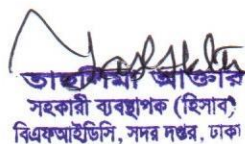 তাহলিমা আক্তার
সহকারী ব্যবস্থাপক (হিসাব)
বিএফআইডিসি, সদর দপ্তর, ঢাকা